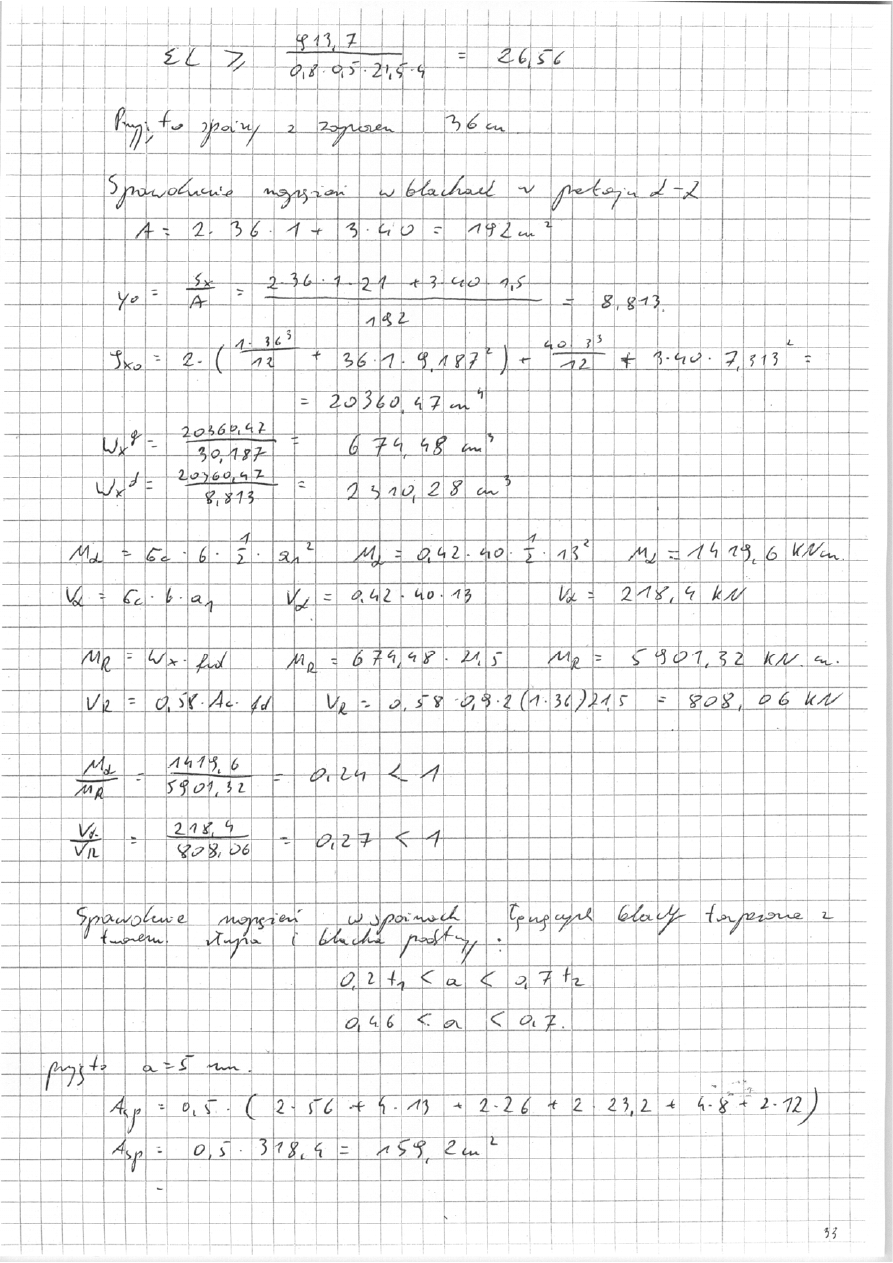 ΣL ≥ 913,7 / 0,8·0,5·21,5·4 = 26,56
Przyjęto spoiny z zapasem 36 cm
Sprawdzenie naprężeń w blachach w przekroju α-α
A = 2·36·1 + 3·40 = 192 cm²
y₀ = Sx / A = 2·36·1·21 + 3·40·1,5 / 192 = 8,813.
Jx₀ = 2·( 1·36³ / 12 + 36·1·9,187² ) + 40·3³ / 12 + 3·40·7,313² =
= 20360,47 cm⁴
Wxᵍ = 20360,47 / 30,187 = 674,48 cm³
Wxᵈ = 20360,47 / 8,813 = 2310,28 cm³
Mα = σc · b · 1/2 · a₁² Mα = 0,42·40·1/2·13² Mα = 1419,6 kNcm.
Vα = σc·b·a₁ Vα = 0,42·40·13 Vα = 218,4 kN
MR = Wx·fd MR = 674,48·21,5 MR = 5901,32 kN cm.
VR = 0,58·Ac·fd VR = 0,58·0,9·2(1·36)21,5 = 808,06 kN
Mα / MR = 1419,6 / 5901,32 = 0,24 < 1
Vα / VR = 218,4 / 808,06 = 0,27 < 1
Sprawdzenie naprężeń w spoinach łączących blachy trapezowe z
trzonem słupa i blachą podstawy:
0,2 t₁ < a < 0,7 t₂
0,46 < a < 0,7.
przyjęto a = 5 mm.
Asp = 0,5·( 2·56 + 4·13 + 2·26 + 2·23,2 + 4·8 + 2·12 )
Asp = 0,5·318,4 = 159,2 cm²
33